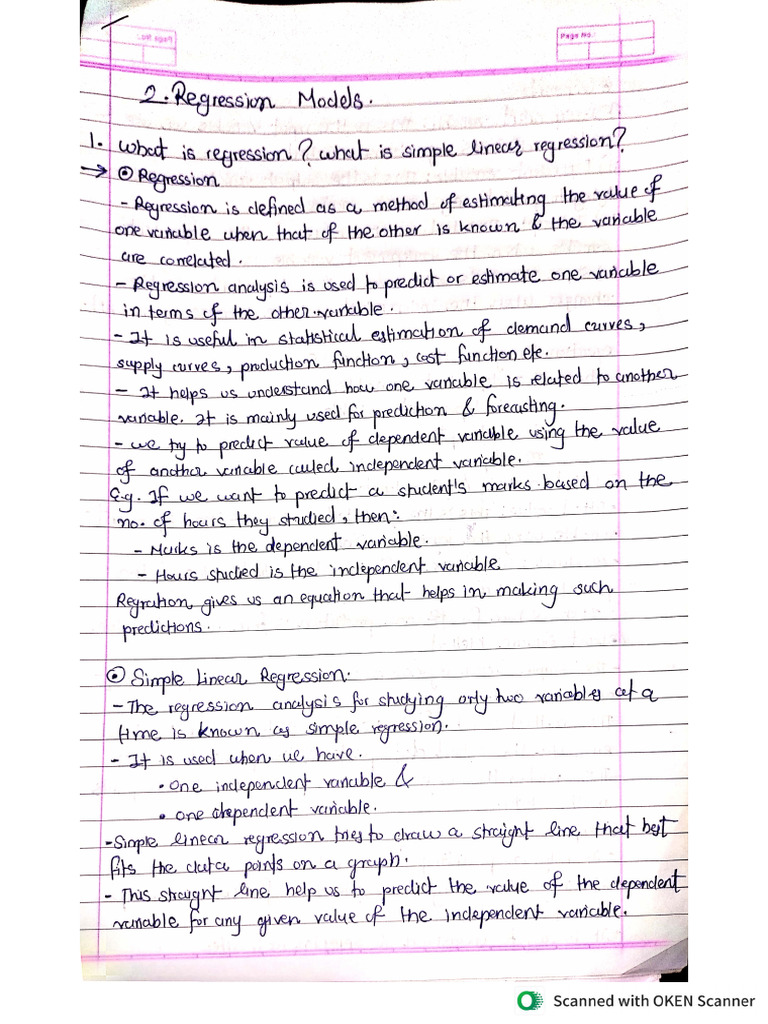 Page No.
Page No.:
2. Regression Models.
1. What is regression? what is simple linear regression?
→ ⊙ Regression
- Regression is defined as a method of estimating the value of
one variable when that of the other is known & the variable
are correlated.
- Regression analysis is used to predict or estimate one variable
in terms of the other variable.
- It is useful in statistical estimation of demand curves,
supply curves, production function, cost function etc.
- It helps us understand how one variable is related to another
variable. It is mainly used for prediction & forecasting.
- we try to predict value of dependent variable using the value
of another variable called independent variable.
E.g. If we want to predict a student's marks based on the
no. of hours they studied, then:
- Marks is the dependent variable.
- Hours studied is the independent variable
Regration gives us an equation that helps in making such
predictions.
⊙ Simple Linear Regression.
- The regression analysis for studying only two variables at a
time is known as simple regression.
- It is used when we have.
• One independent variable &
• one dependent variable.
- Simple linear regression tries to draw a straight line that best
fits the data points on a graph.
- This straight line help us to predict the value of the dependent
variable for any given value of the independent variable.
Scanned with OKEN Scanner